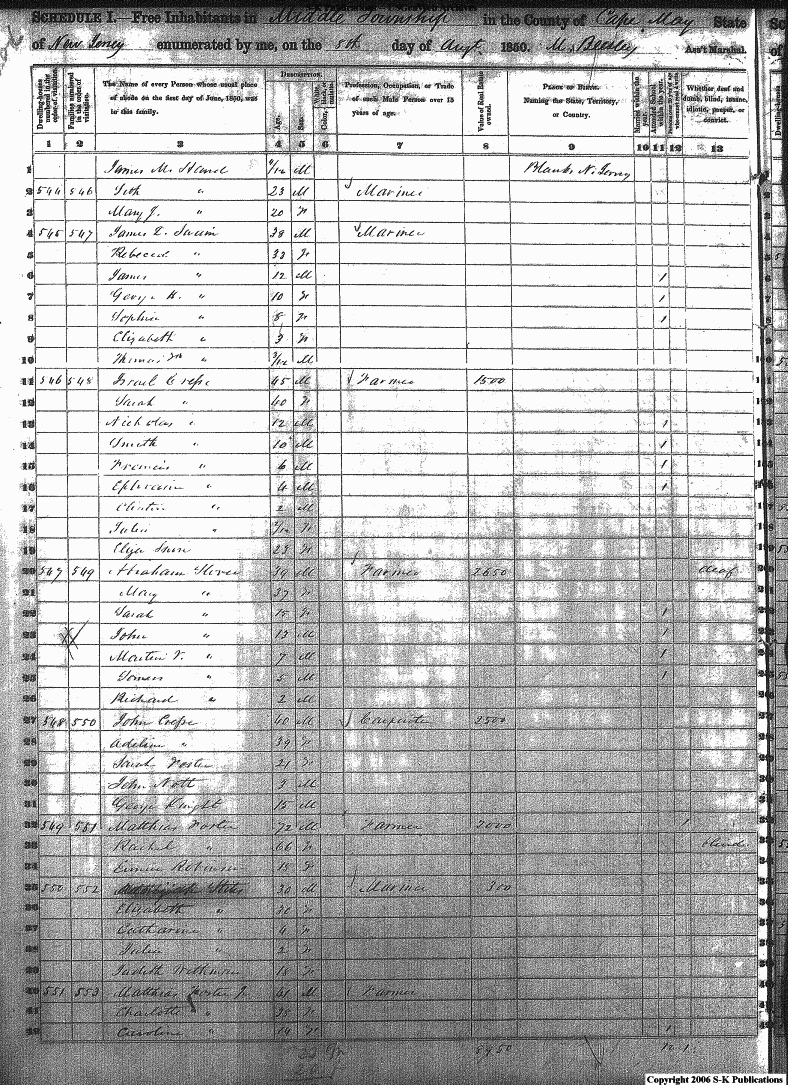 SCHEDULE I.—Free Inhabitants in Middle Township in the County of Cape May State
of New Jersey enumerated by me, on the 5th day of Augt 1850. M. Beesley Ass't Marshal.
Dwelling-houses numbered in the order of visitation.
Families numbered in the order of visitation.
The Name of every Person whose usual place of abode on the first day of June, 1850, was in this family.
DESCRIPTION.
Age.
Sex.
Color, White, black, or mulatto.
Profession, Occupation, or Trade of each Male Person over 15 years of age.
Value of Real Estate owned.
PLACE OF BIRTH. Naming the State, Territory, or Country.
Married within the year.
Attended School within the year.
Whether deaf and dumb, blind, insane, idiotic, pauper, or convict.
1 2 3 4 5 6 7 8 9 10 11 12 13
1 James M. Hand /12 M N. Jersey
2 544 546 Seth " 23 M Mariner
3 Mary J. " 20 F
4 545 547 James L. 38 M Mariner
5 Rebecca " 33 F
6 James " 12 M 1
7 George H. " 10 1
8 Sophia " 8 F 1
9 Elizabeth " 3 F
10 Thomas " 3/12 M
11 546 548 Israel Cresse 45 M Farmer 1500
12 Sarah " 40 F
13 Nicholas " 12 M 1
14 Smith " 10 M 1
15 Francis " 6 M 1
16 Ephraim " 4 M 1
17 Clinton " 2 M
18 Julia " /12 F
19 Eliza 23 F
20 547 549 Abraham 39 M Farmer 2650 deaf
21 Mary " 37 F
22 Sarah " 15 F 1
23 John " 13 M 1
24 Martin V. " 7 M 1
25 Somers " 5 M 1
26 Richard " 2 M
27 548 550 John Cresse 40 M Carpenter 2500
28 Adeline " 39 F
29 Sarah Foster 21 F
30 John Nott 3 M
31 George Knight 15 M
32 549 551 Matthias Foster 72 M Farmer 2000 1
33 Rachel " 66 F blind
34 Robinson 15 F
35 550 552 30 M Mariner 300
36 Elizabeth " 30 F
37 Catharine " 4 F
38 Julia " 2 F
39 Judith 18 F
40 551 553 Matthias Foster Jr 41 M Farmer
41 Charlotte " 35 F
42 Caroline " 14 F 1
8950 12 1
Copyright 2006 S-K Publications